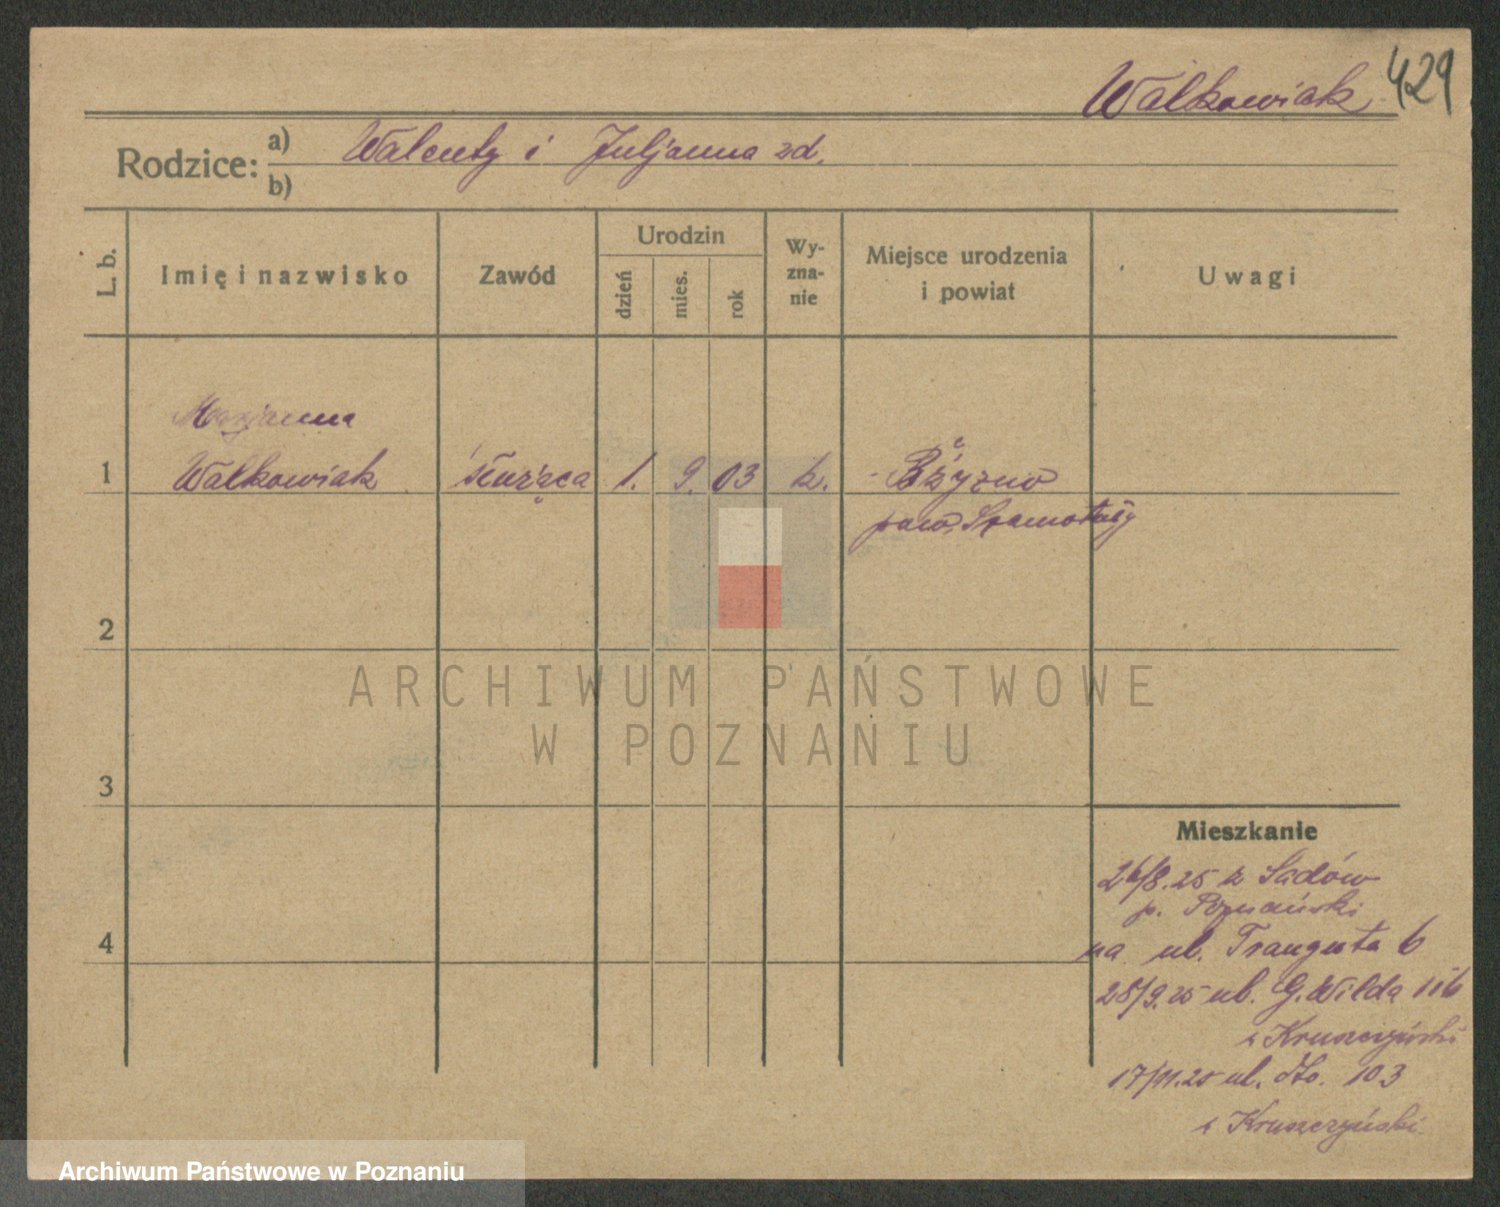 Walkowiak 429
Rodzice: a) Walenty i Juljanna zd.
b)
L. b.
Imię i nazwisko
Zawód
Urodzin
dzień
mies.
rok
Wy-
zna-
nie
Miejsce urodzenia
i powiat
Uwagi
Marjanna
1 Walkowiak służąca 1. 9. 03 k.
pow. Szamotuły
2
3
4
ARCHIWUM PAŃSTWOWE
W POZNANIU
Mieszkanie
26/8.25 z Sadów
p. Poznański
na ul. Trauguta 6
28/9.25 ul. G. Wilda 116
Kruszczyński
17/11.25 ul. 103
Kruszczyński
Archiwum Państwowe w Poznaniu